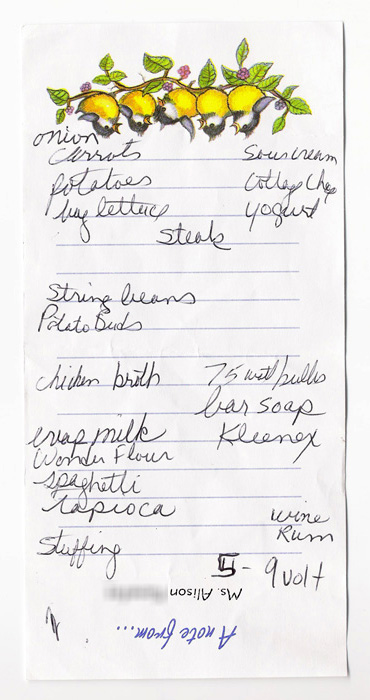 onion
carrots sour cream
potatoes Cottage Chee
big lettuce yogurt
Steak
String beans
Potato Buds
chicken broth 75 watt bulbs
bar soap
evap milk Kleenex
Wonder Flour
spaghetti
Tapioca
wine
Rum
Stuffing 5 - 9 volt
Ms. Alison
A note from...